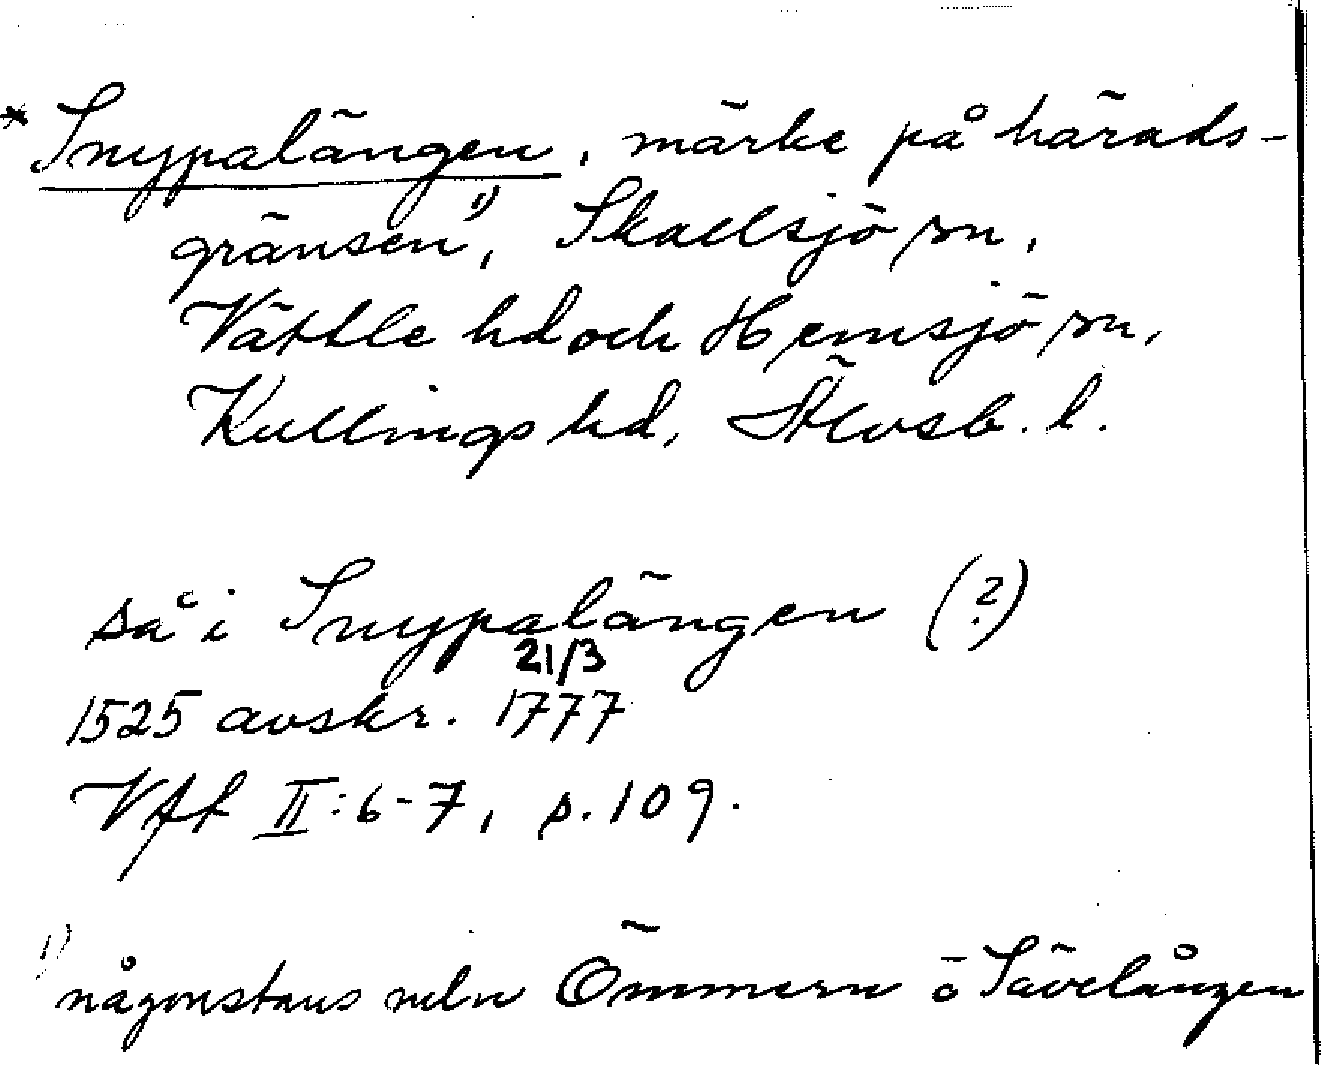 * Snypalängen, märke på härads-
gränsen¹⁾, Skallsjö sn,
Vättle hd och Hemsjö sn,
Kullings hd, Älvsb. l.
så i Snypalängen (?)
21/3
1525 avskr. 1777
Vft II:6-7, s. 109.
¹⁾ någonstans meln Ömmern o Sävelången